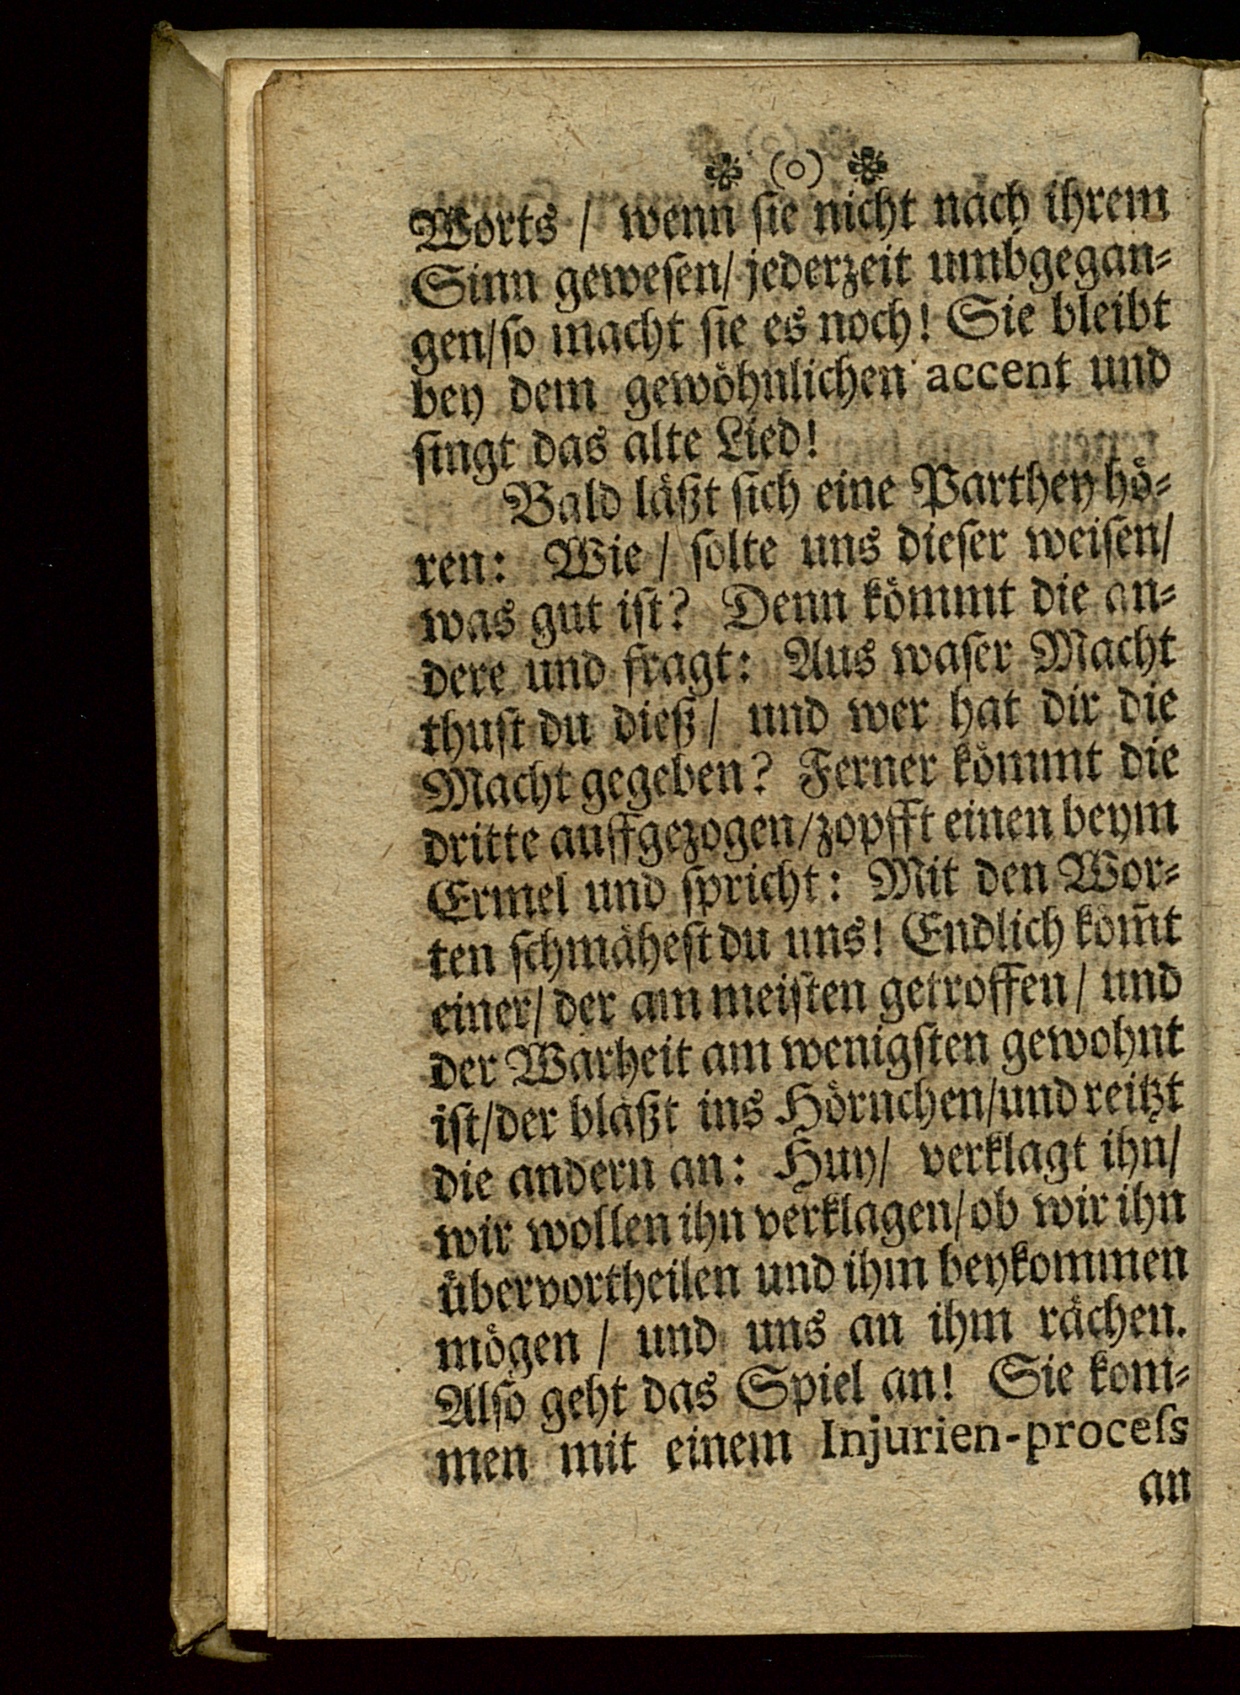 (o)
Worts / wenn ſie nicht nach ihrem
Sinn geweſen/ jederzeit umbgegan⸗
gen/ſo macht ſie es noch! Sie bleibt
bey dem gewoͤhnlichen accent und
ſingt das alte Lied!
Bald laͤßt ſich eine Parthey hoͤ⸗
ren: Wie / ſolte uns dieſer weiſen/
was gut iſt? Denn koͤmmt die an⸗
dere und fragt: Aus waſer Macht
thuſt du dieß/ und wer hat dir die
Macht gegeben? Ferner koͤmmt die
dritte auffgezogen/zopfft einen beym
Ermel und ſpricht: Mit den Wor⸗
ten ſchmaͤheſt du uns! Endlich kom̃t
einer/ der am meiſten getroffen/ und
der Warheit am wenigſten gewohnt
iſt/der blaͤßt ins Hoͤrnchen/und reitzt
die andern an: Huy/ verklagt ihn/
wir wollen ihn verklagen/ob wir ihn
uͤbervortheilen und ihm beykommen
moͤgen / und uns an ihm raͤchen.
Alſo geht das Spiel an! Sie kom⸗
men mit einem Injurien-proceſs
an